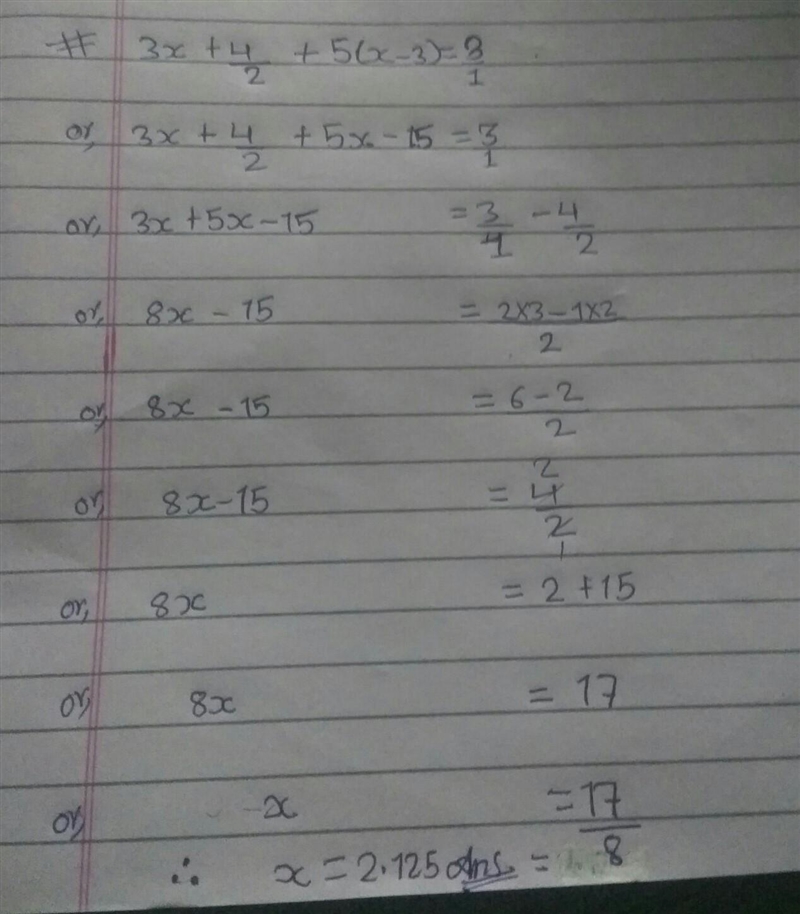 # 3x + 4/2 + 5(x-3) = 3/1
or, 3x + 4/2 + 5x - 15 = 3/1
or, 3x + 5x - 15 = 3/1 - 4/2
or, 8x - 15 = 2x3 - 1x2/2
or, 8x - 15 = 6 - 2/2
or, 8x - 15 = 2 4/2 1
or, 8x = 2 + 15
or, 8x = 17
or, x = 17/8
∴ x = 2.125 Ans. =